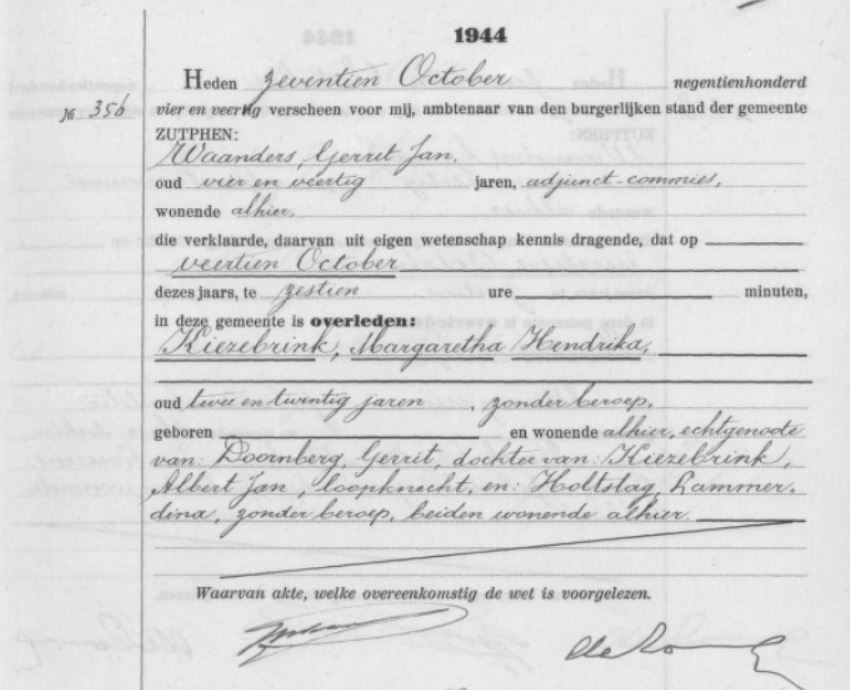 1944
Heden zeventien October negentienhonderd
№ 356 vier en veertig verscheen voor mij, ambtenaar van den burgerlijken stand der gemeente
ZUTPHEN:
Waanders, Gerrit Jan.
oud vier en veertig jaren, adjunct-commies,
wonende alhier.
die verklaarde, daarvan uit eigen wetenschap kennis dragende, dat op
veertien October
dezes jaars, te zestien ure minuten,
in deze gemeente is overleden:
Kiezebrink, Margaretha Hendrika,
oud twee en twintig jaren, zonder beroep,
geboren en wonende alhier, echtgenoote
van: Doornberg, Gerrit, dochter van: Kiezebrink,
Albert Jan, loopknecht, en: Holtslag, Lammer-
dina, zonder beroep, beiden wonende alhier.
Waarvan akte, welke overeenkomstig de wet is voorgelezen.